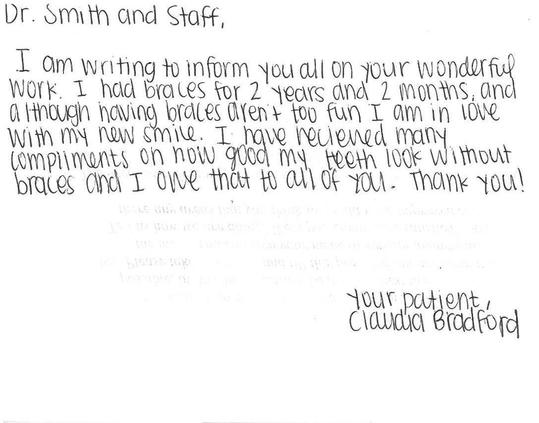 Dr. Smith and Staff,
I am writing to inform you all on your wonderful
work. I had braces for 2 years and 2 months, and
although having braces aren't too fun I am in love
with my new smile. I have recieved many
compliments on how good my teeth look without
braces and I owe that to all of you. Thank you!
your patient,
Claudia Bradford